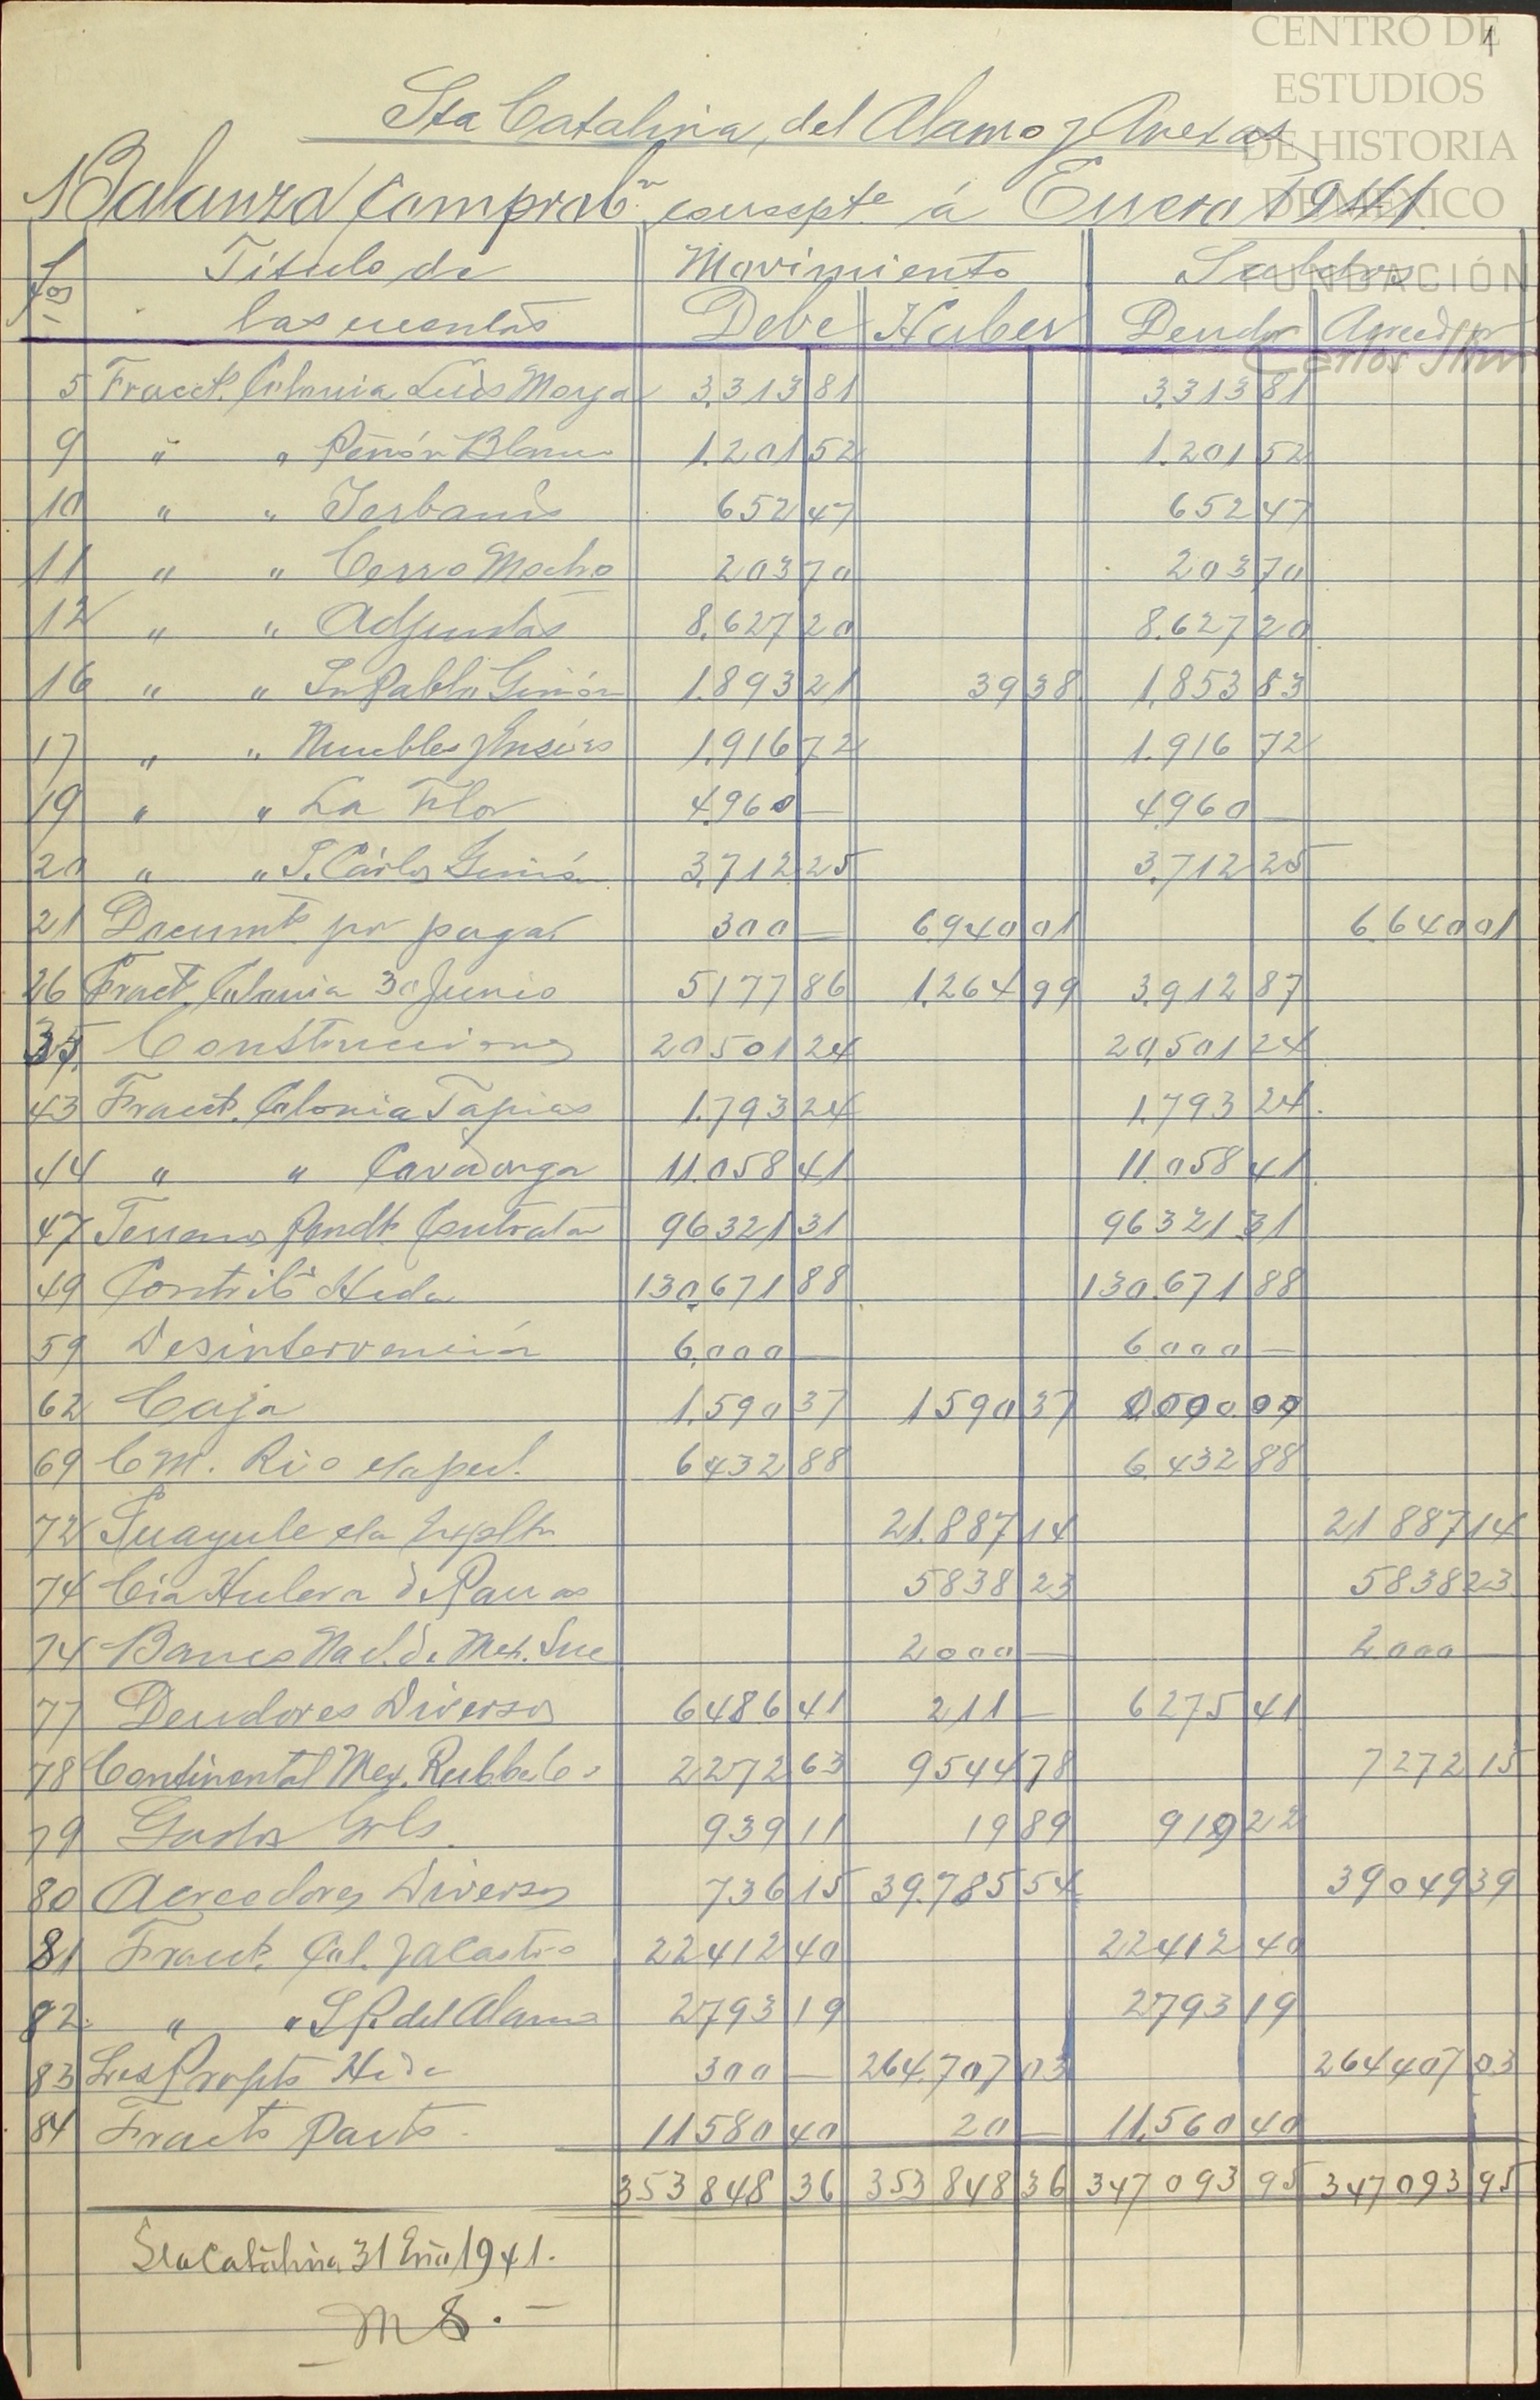 CENTRO DE
ESTUDIOS
DE HISTORIA
DE MÉXICO
FUNDACIÓN
Carlos Slim
1
Sta Catalina, del Alamo y Anexas
Balanza Comprobn. correspte á Enero 1941.
Fos Título de Movimiento Saldos
las cuentas Debe Haber Deudor Acreedor
5 Fracct. Colonia Luis Moya 3.313 81 3.313 81
9 " " Peñón Blanco 1.201 52 1.201 52
10 " " Yerbanis 652 47 652 47
11 " " Cerro Mocho 203 70 203 70
12 " " Adjuntas 8.627 20 8.627 20
16 " " Sn Pablo Gimón 1.893 21 39 38 1.853 83
17 " " Muebles y 1.916 72 1.916 72
19 " " La Flor 4.960 — 4.960 —
20 " " S. Cárlos Gimón 3.712 25 3.712 25
21 Documts por pagar 300 — 6.940 01 6.640 01
26 Fract. Colonia 30 Junio 5177 86 1.264 99 3.912 87
35 Construcciones 20501 24 20.501 24
43 Fracct. Colonia Tapias 1.793 24 1.793 24
44 " " Cavadonga 11.058 41 11.058 41
47 Terrenos Rendt. Contrato 96321 31 96321 31
49 Contribs Hcda 130.671 88 130.671 88
59 Desintervención 6.000 — 6000 —
62 Caja 1.590 37 1590 37 0.000.00
69 C M. Rio 6432 88 6.432 88
72 Guayule cta Expltn 21.887 14 21887 14
74 Cia Hulera de Parras 5838 23 5838 23
74 Banco Nacl. de Mex. Suc 2000 — 2.000 —
77 Deudores Diversos 6486 41 211 — 6275 41
78 Continental Mex. Rubber Co 2272 63 9544 78 7272 15
79 Gastos Grls. 939 11 19 89 919 22
80 Acreedores Diversos 736 15 39.785 54 39049 39
81 Fracct. Col. J A Castro 22412 40 22412 40
82. " " S P. del Alamo 2793 19 2793 19
83 Propts Hcda 300 — 264.707 03 264407 03
84 Fracts Parts. 11580 40 20 — 11.560 40
353 848 36 353 848 36 347 093 95 347 093 95
Sta Catalina 31 Ero 1941.
M S. —